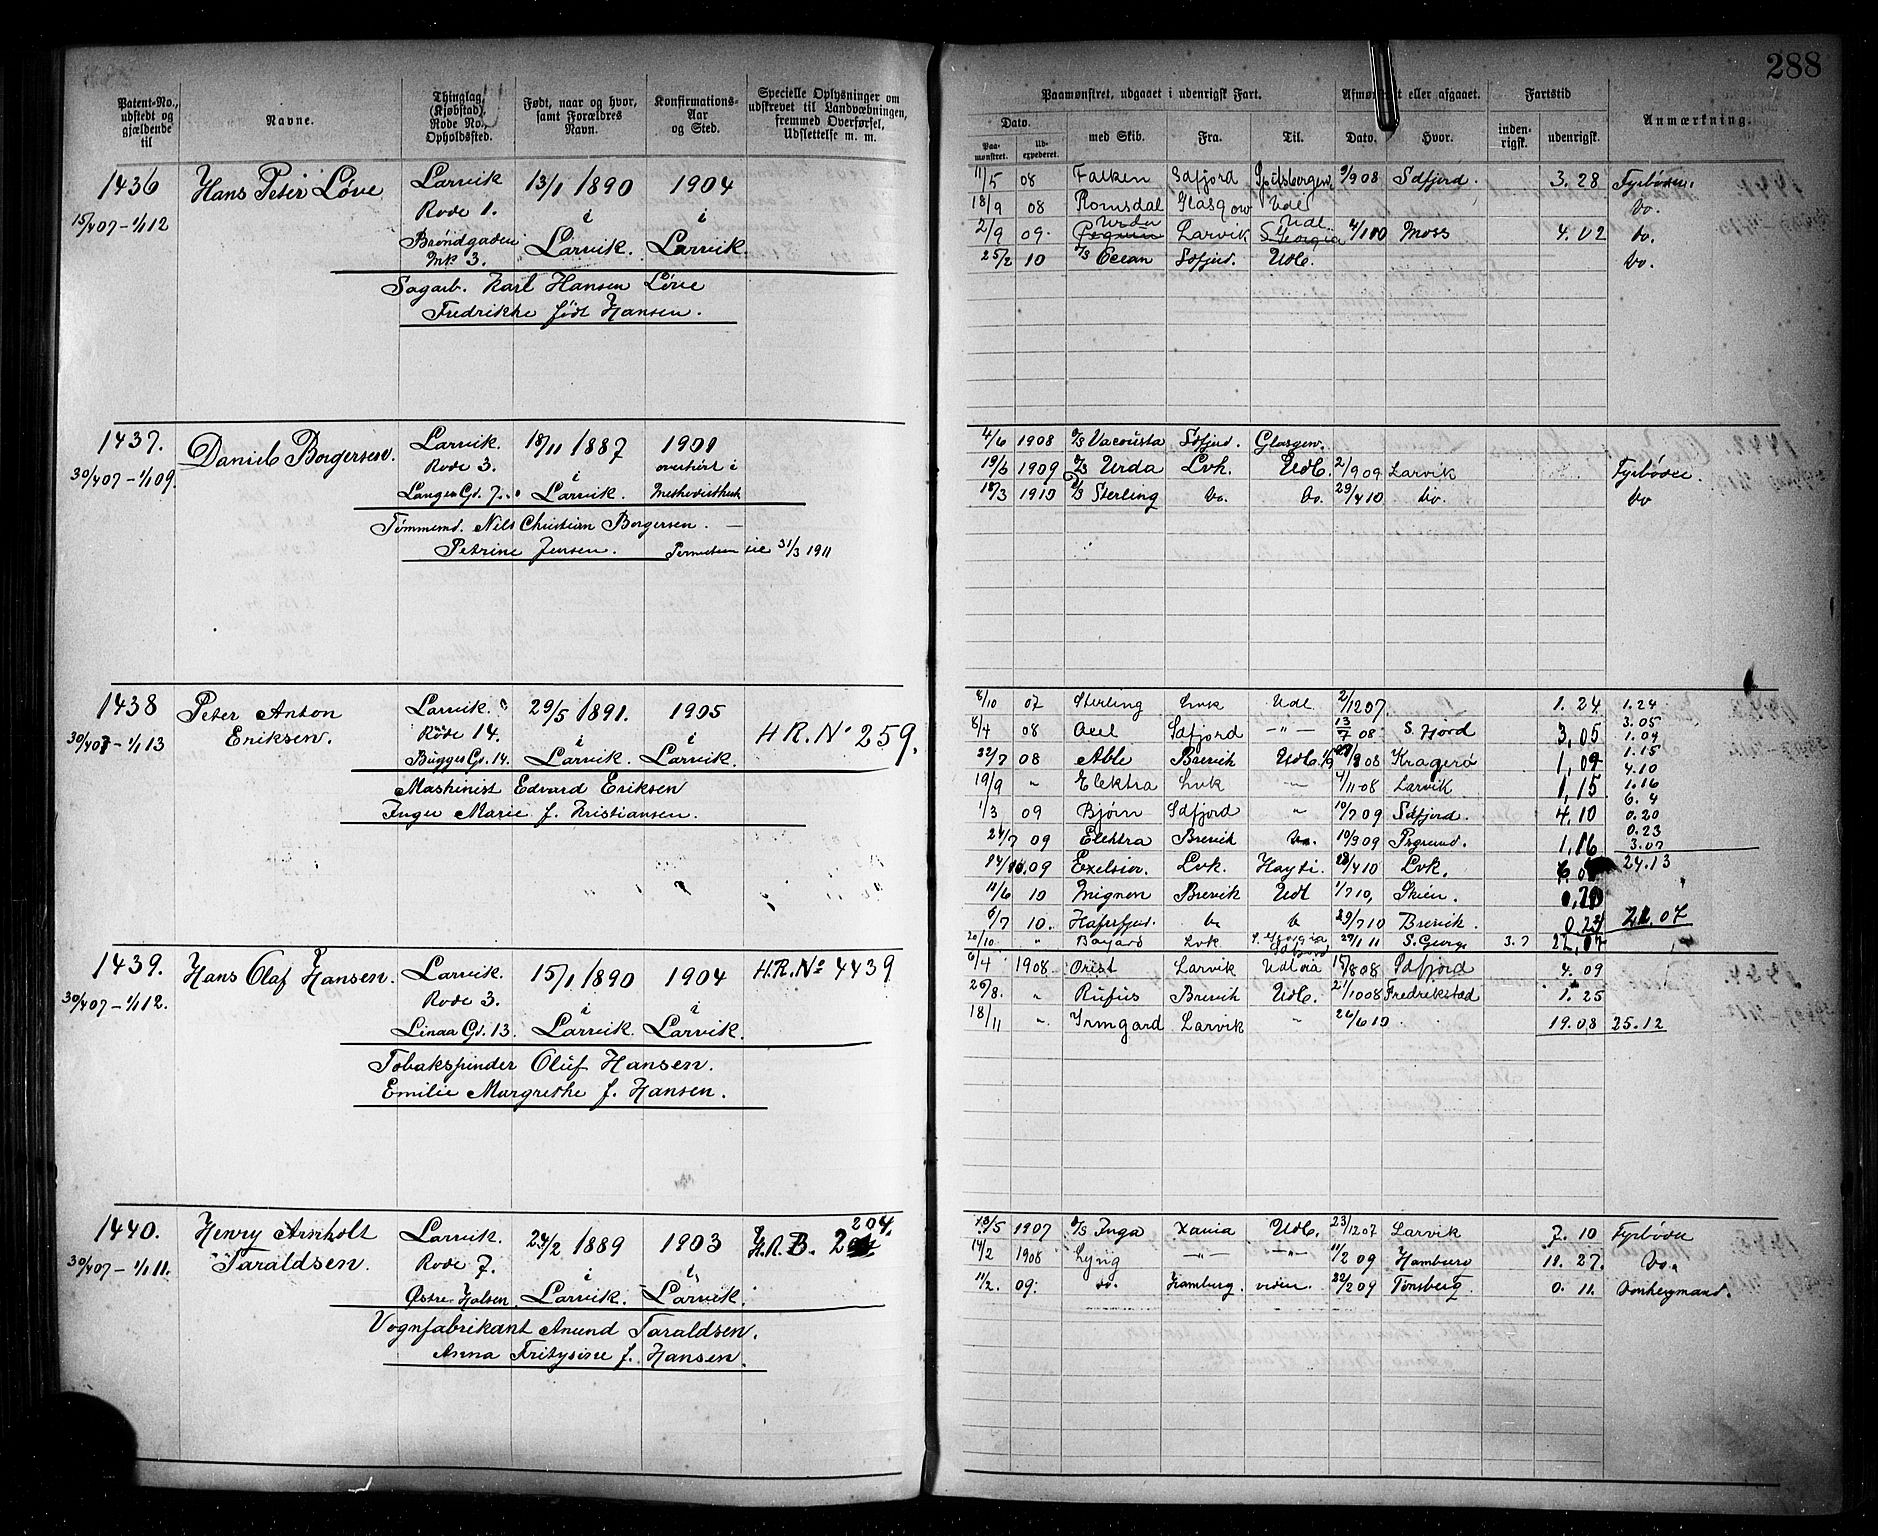 288
Patent-No., udstedt og gjældende til
Navne.
Thinglag, (Kjøbstad), Rode No., Opholdssted.
Født, naar og hvor, samt Forældres Navn.
Konfirmations-Aar og Sted.
Specielle Oplysninger om udskrevet til Landværnet, fremmed Overførsel, Udslettelse m. m.
Paamønstret, udgaaet i udenrigsk Fart.
Afmønstret eller afgaaet.
Fartstid
Anmærkning.
Dato.
Paa-mønstret.
Ud-expederet.
med Skib.
Fra.
Til.
Dato.
Hvor.
inden-rigsk.
udenrigsk.
1436 Hans Peter Löve Larvik 13/1 1890 1904
15/4 07-1/1 12 Rode 1. i i
Brøndgaden Larvik. Larvik.
No 3.
Sagarb. Karl Hansen Löve
Fredrikke født Hansen.
11/5 08 Falken Sdfjord Spitsbergen 9/9 08 Sdfjord. 3. 28 Fyrbøder.
18/9 08 Romsdal Glasgow Udl Do.
2/9 09. Pequin Urda Larvik S. Georgia Udl. Moss 4. 02 Do.
25/2 10 Ocean Sdfjord. Udl. Do.
1437. Daniel Borgersen. Larvik. 18/11 1887 1901
30/4 07-1/1 09. Rode 3. i overhørt i
Langes Gd. 7. Larvik. Methodistkirk
Tømmermd. Nils Christian Borgersen.
Petrine Jensen. Permission til 31/3 1911
4/6 1908 Vacousta Sdfjord. Glasgow.
19/6 1909 Urda Lvk. Udl. 2/9 09 Larvik Fyrbøder
18/3 1910 Sterling Do. Do. 29/4 10 Do. Do
1438 Peter Anton Larvik. 29/5 1891. 1905
Eriksen. Rode 14. i i H.R. No 259.
30/4 07-1/1 13 Bugges Gd. 14. Larvik. Larvik.
Maskinist Edvard Eriksen
Inger Marie f. Kristiansen.
8/10 07 Sterling Lvk Udl 2/12 07. 1. 24 1.24
8/4 08 Acel Sdfjord -"- 13/7 08 S. Fjord 3,05 3.05
22/7 08 Able Brevik Udl. 08 Kragerø 1,09 1.09
19/9 " Elektra Lvk 4/11 08 Larvik 1,15 1.15
1/3 09 Bjørn Sdfjord " 10/7 09 Sdfjord. 4.10 4.10
24/7 09 Elektra Brevik Do. 10/9 09 Prsgrund. 1,16 1.16
09 Exelsior. Lvk. Hayti. 4 10 Lvk. 6. 4
11/6 10 Mignon Brevik Udl 1/7 10, Skien. 0.20
6/7 10. Hafrsfjord. Do Do 29/7 10 Brevik. 0.23 0.23
3.07
24.13
20/10 " Bayard Lvk S. Georgia 27/1 11 S. Georg. 3. 7
1439. Hans Olaf Hansen. Larvik. 15/1 1890 1904 H.R. No 4439
30/4 07-1/1 12. Rode 3. i i
Linaa Gd. 13. Larvik. Larvik.
Tobakspinder Oluf Hansen.
Emilie Margrethe f. Hansen.
6/4 1908. Orist Larvik Udl via Sdfjord 15/8 08 Sdfjord 4. 09
26/8. " Rufus Brevik Udl. 21/10 08 Fredrikstad 1. 25
18/11 " Irmgard Larvik " 26/6 10 19.08 25.12
1440. Henry Arnholt Larvik. 24/2 1889 1903 H.R.B. 204.
30/4 07-1/1 11. Taraldsen. Rode 7. i i
Østre Halsen. Larvik. Larvik.
Vognfabrikant Anund Taraldsen.
Anna Fritysine f. Hansen.
18/5 1907 Inga Xania Udl. 23/12 07 Larvik 7. 10 Fyrbøder
14/2 1908 Lyng -"- -"- 11/2 09 Hamburg 11. 27. Do.
11/2. 09. do. Hamburg. viden. 22/2 09 Tønsberg. 0. 11. Donkeymand.